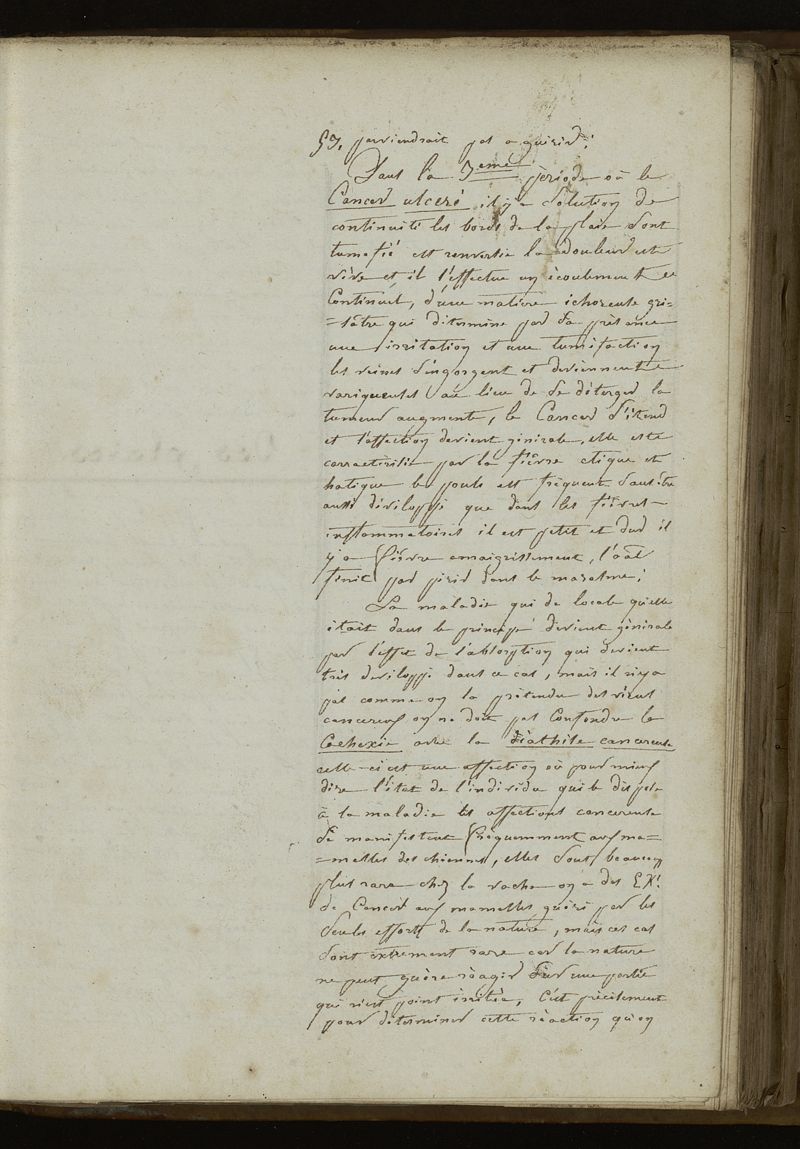 53. parviendrait pas a guérir.
Dans la 3eme période où le
Cancer ulceré il y a solution de
continuité les bords de la plaie sont
tumefié est renversée la douleur est
vive et il s'effectue un écoulement
Continuel, d'une matiere ichoreuse gri-
-sâtre qui determine par sa présence
une irritation et une tumifaction
les veines s'engorgent et deviennent
variqueuses au lieu de se déterger la
tumeur augmente, le Cancer s'étend
et l'affection devient générale, elle est
carractérisée par la fièvre etique et
hatique le pouls est fréquent sans être
aussi développé que dans les fièvres
inflammatoires il est petit et dur il
y a fièvre amaigrissement, l'aãl
finit par périr dans le marasme.
La maladie qui de locale qu'elle
était dans le principe devient générale
par l'effet de l'absorption qui devient
très developpé dans ce cas, mais il n'y a
pas comme on la prétendu des virus
cancereux on ne doit pas Confondre la
Cachexie avec la Diathèse cancereuse
celle-ci est une affection où pour mieux
dire l'état de l'individu qui le dispose
à la maladie les affections cancereuse
se manifestent fréquemment aux ma-
-melles des chiennes, elles sont beaucoup
plus rare chez la vache on a des EX.
de Cancer aux mamelles guéri par les
seules efforts de la nature, mais ces cas
sont extrement rare car la nature
ne peut guère réagir sur une partie
qui n'est point irritée, C'est précisement
pour déterminer cette réaction qu'on